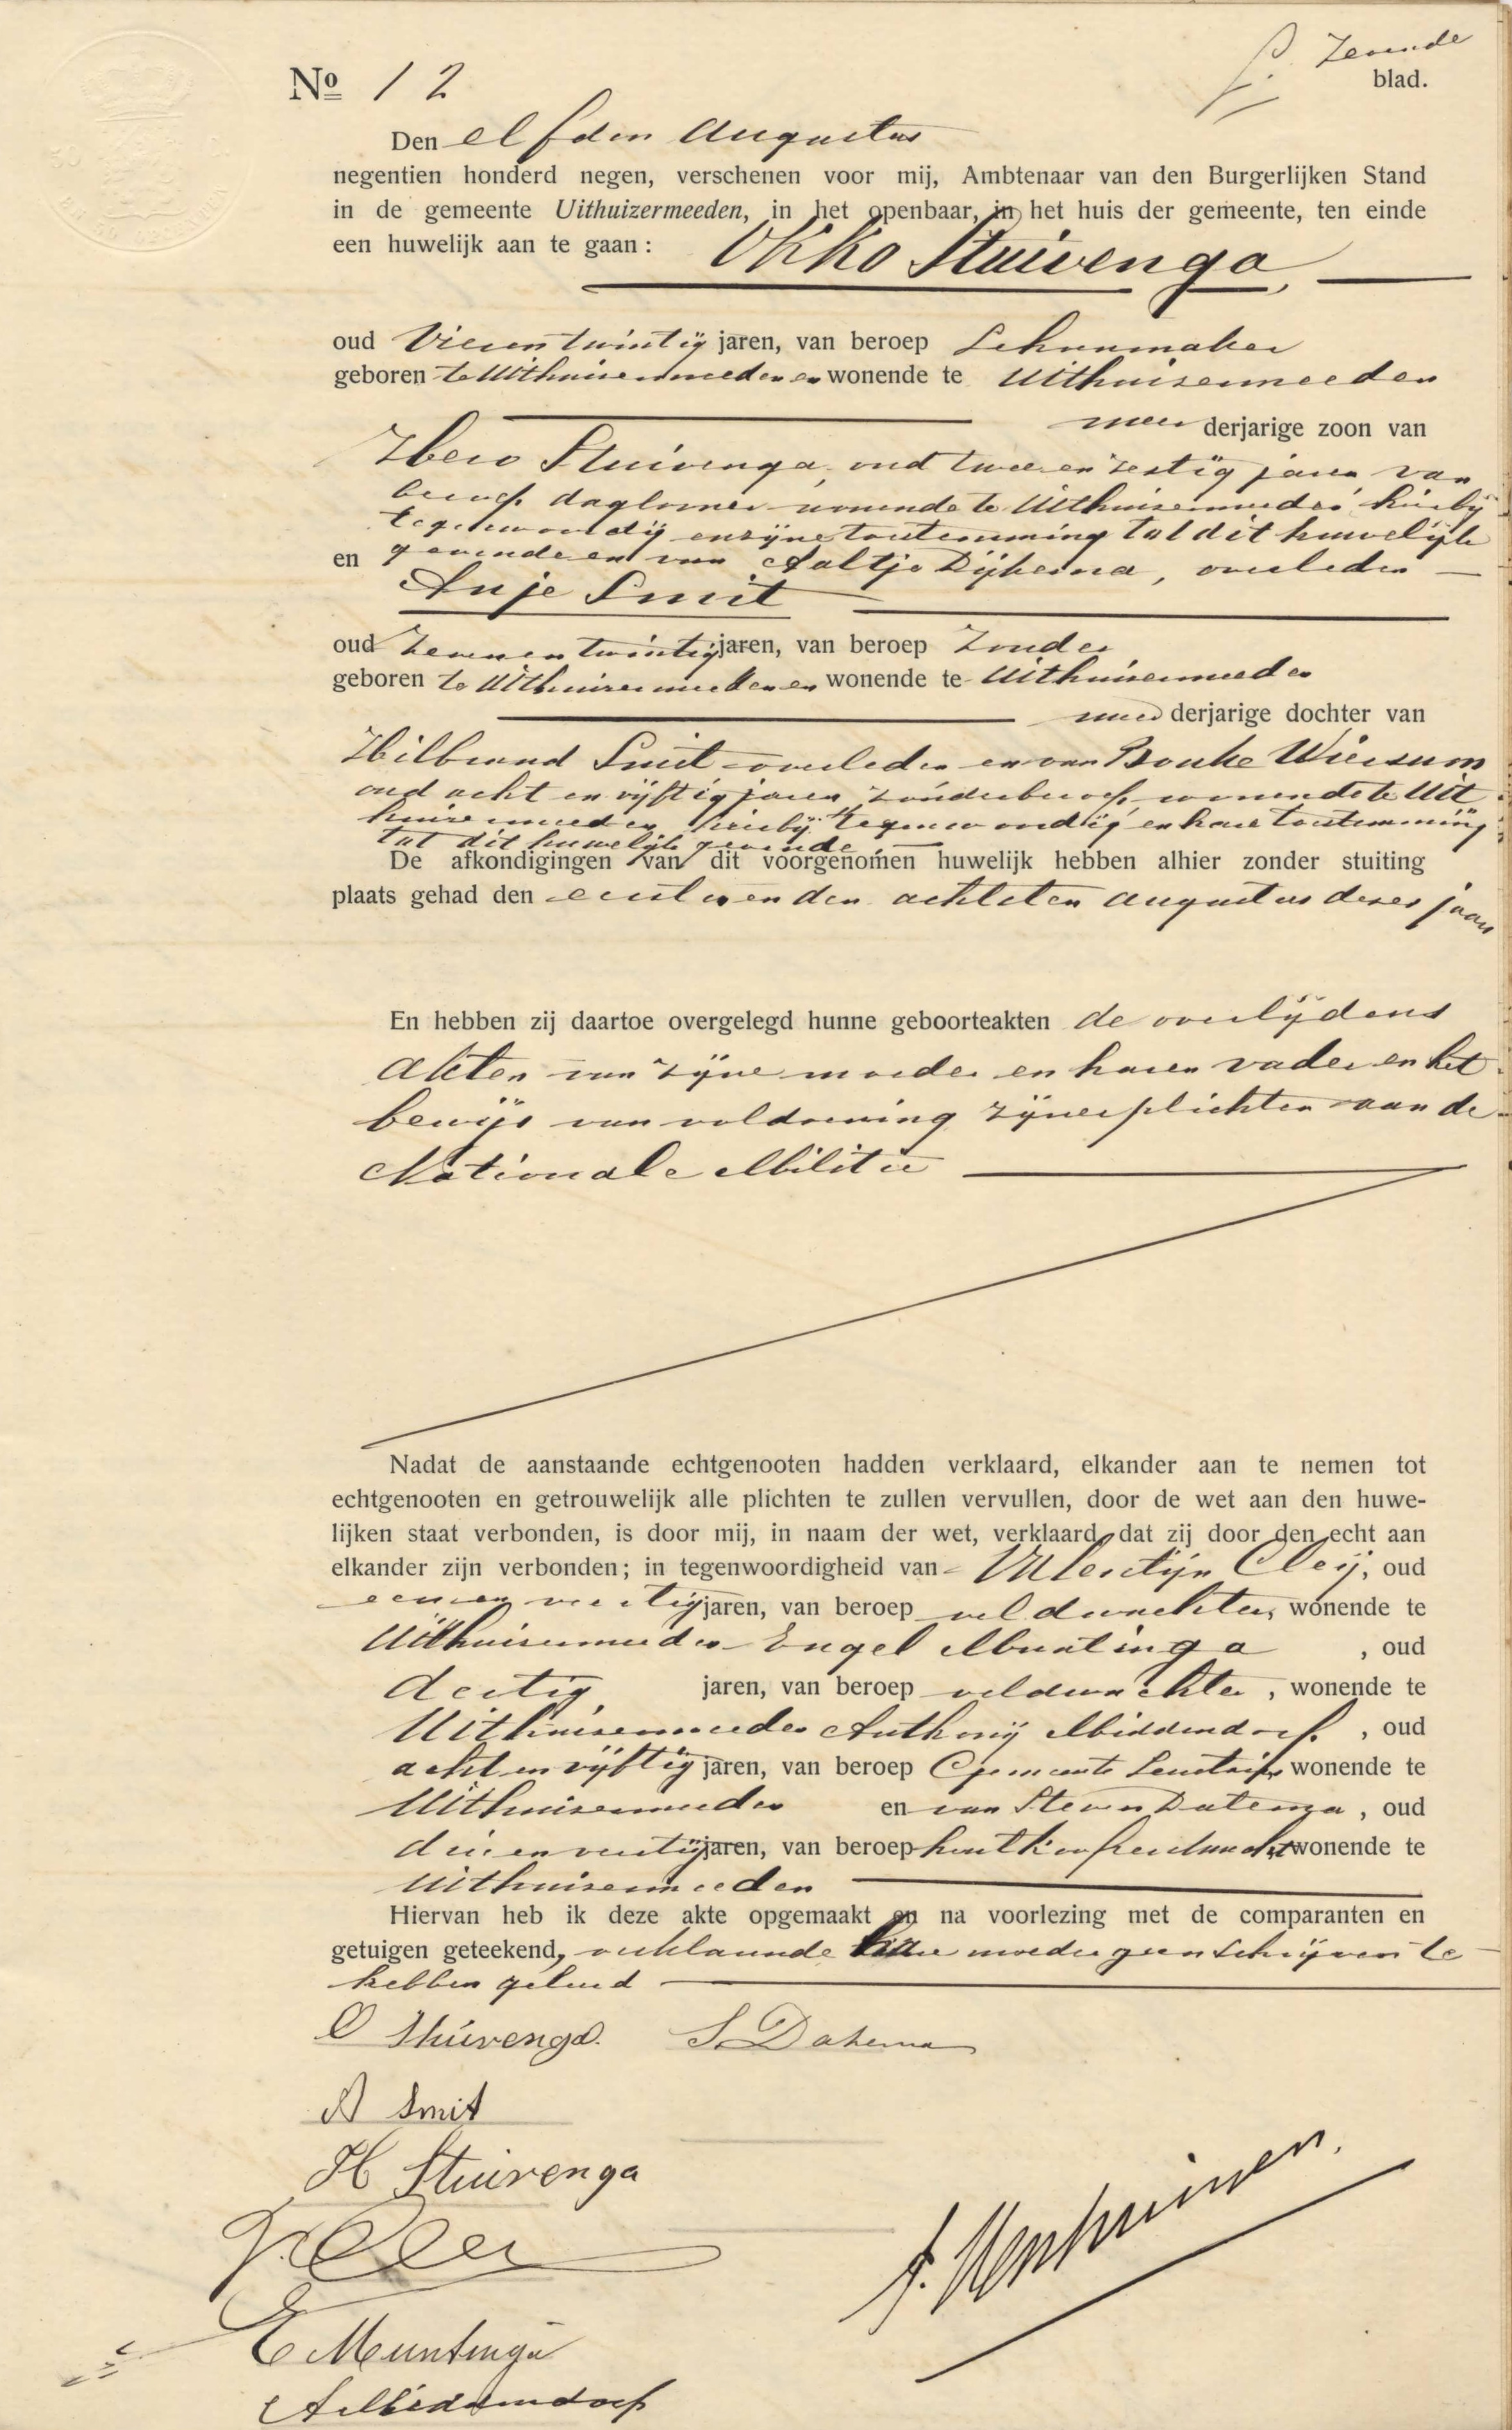 Zevende
blad.
No 12
Den elfden Augustus
negentien honderd negen, verschenen voor mij, Ambtenaar van den Burgerlijken Stand
in de gemeente Uithuizermeeden, in het openbaar, in het huis der gemeente, ten einde
een huwelijk aan te gaan: Okko Stuivenga,
oud vierentwintig jaren, van beroep Schoenmaker
geboren te Uithuizermeeden en wonende te Uithuizermeeden
meer derjarige zoon van
Hero Stuivenga, oud twee en zestig jaren van
beroep daglooner wonende te Uithuizermeeden hierbij
tegenwoordig en zijne toestemming tot dit huwelijk
gevende en van Aaltje Dijkema, overleden
en
Anje Smit
oud zevenentwintig jaren, van beroep zonder
geboren te Uithuizermeeden en wonende te Uithuizermeeden
meer derjarige dochter van
Hilbrand Smit overleden en van Bouke Wiersum
oud acht en vijftig jaren zonder beroep wonende te Uit
huizermeeden hierbij tegenwoordig en hare toestemming
tot dit huwelijk gevende
De afkondigingen van dit voorgenomen huwelijk hebben alhier zonder stuiting
plaats gehad den eersten en den achtsten Augustus dezes jaars
En hebben zij daartoe overgelegd hunne geboorteakten de overlijdens
akten van zijne moeder en haren vader en het
bewijs van voldoening zijner plichten aan de
Nationale Militie
Nadat de aanstaande echtgenooten hadden verklaard, elkander aan te nemen tot
echtgenooten en getrouwelijk alle plichten te zullen vervullen, door de wet aan den huwe-
lijken staat verbonden, is door mij, in naam der wet, verklaard, dat zij door den echt aan
elkander zijn verbonden; in tegenwoordigheid van Valentijn Cleij, oud
eenen veertig jaren, van beroep veldwachter, wonende te
Uithuizermeeden Engel Muntinga, oud
dertig jaren, van beroep veldwachter, wonende te
Uithuizermeeden Anthonij Middendorp, oud
acht en vijftig jaren, van beroep Gemeente Secretaris wonende te
Uithuizermeeden en van Steven Datema, oud
drie en veertig jaren, van beroep wonende te
Uithuizermeeden
Hiervan heb ik deze akte opgemaakt en na voorlezing met de comparanten en
getuigen geteekend, verklarende hare moeder geen schrijven te
hebben geleerd
O Stuivenga. S Datema
A Smit
H Stuivenga
E Muntinga
A Middendorp